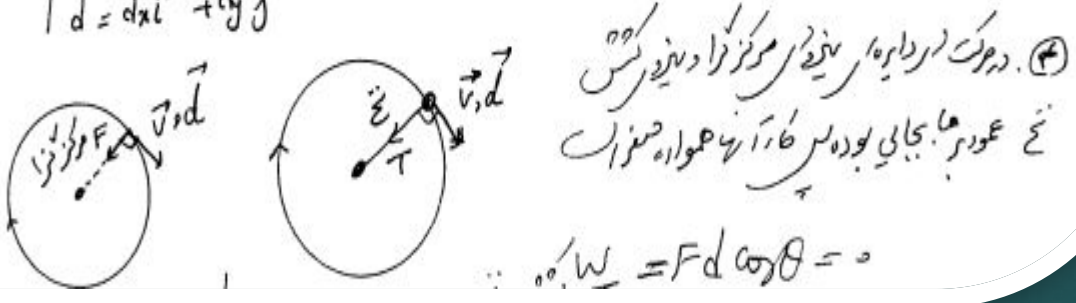 d = dxi + dyj
⊛. در حرکت دایره‌ای نیروی مرکزگرا و نیروی کشش
نخ عمود بر جابجایی بوده پس کار آنها همواره صفر است
v,d
F مرکزگرا
v,d
نخ
T
W = Fd cosθ = 0